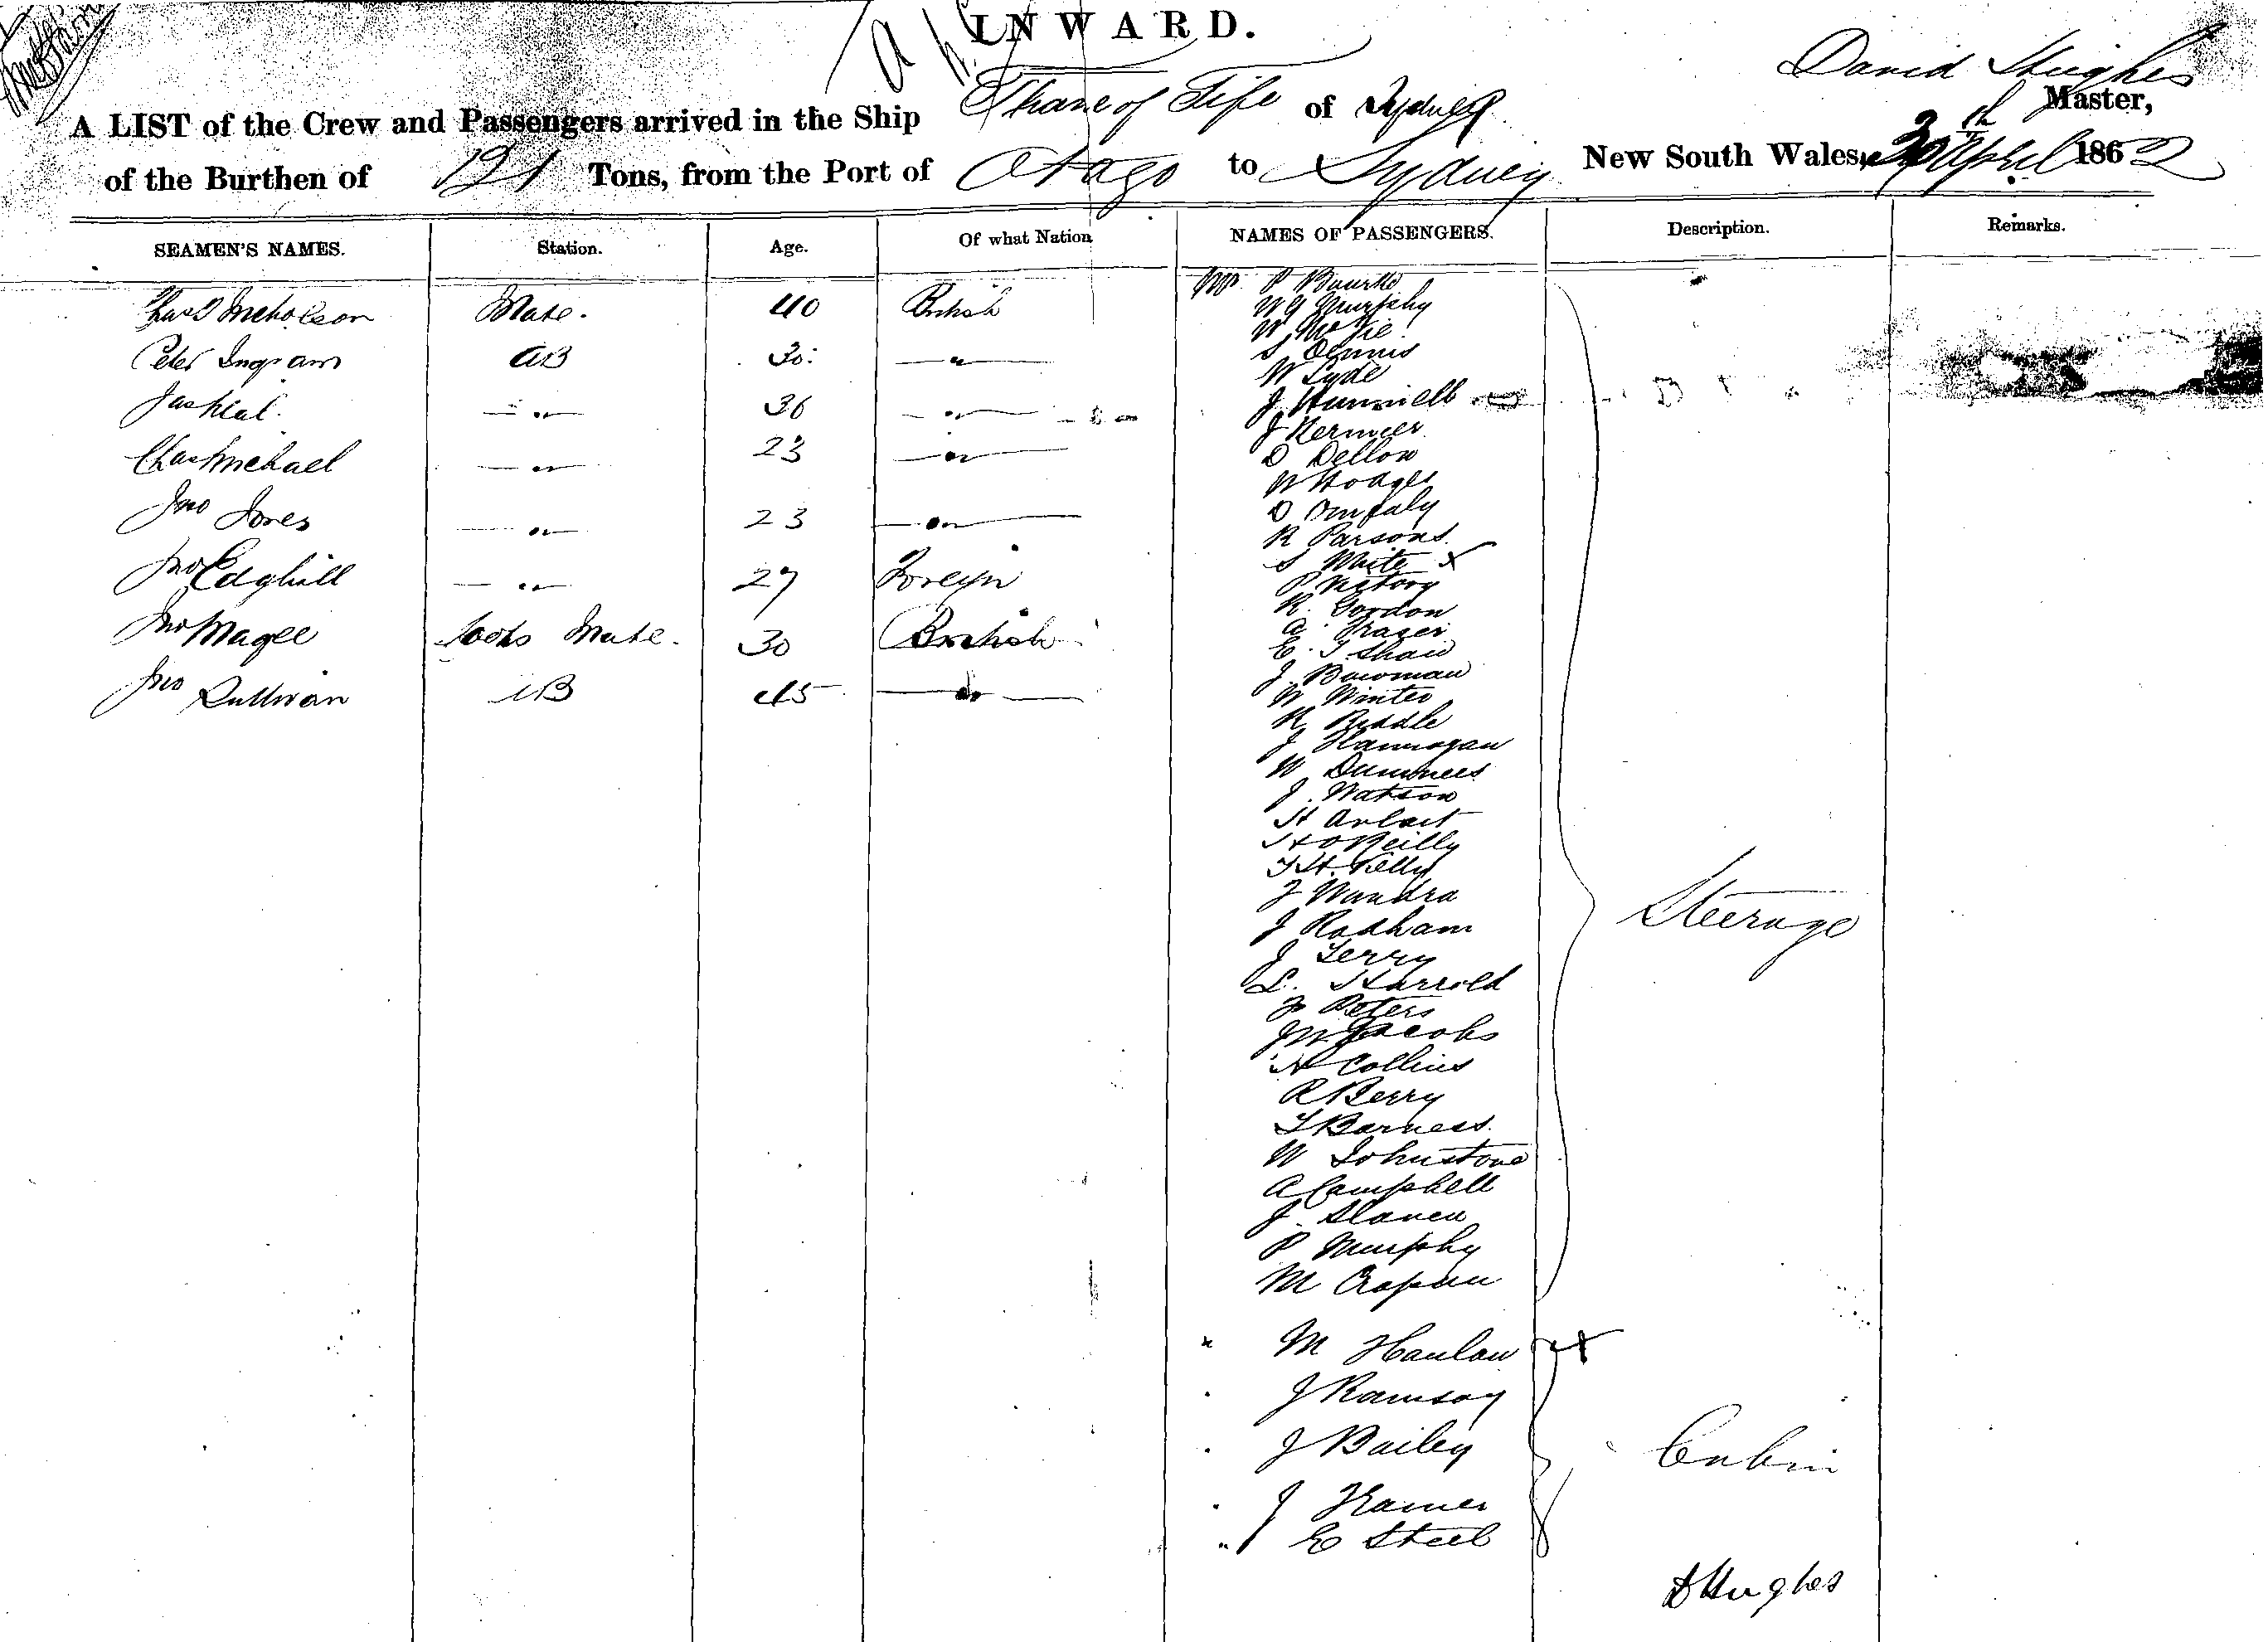 INWARD.
David Hughes
A LIST of the Crew and Passengers arrived in the Ship Thane of Fife of Sydney Master,
of the Burthen of 121 Tons, from the Port of Otago to Sydney New South Wales, 30th April 1862
SEAMEN'S NAMES. Station. Age. Of what Nation NAMES OF PASSENGERS. Description. Remarks.
Nicholson Mate. 40 British
Peter Ingram AB 30
Jas 36
Chas Michael 23
Jno Jones 23
Jno Edghill 27 Foreign
Jno Magee Cooks Mate. 30 British
Jno Sullivan AB 45
P Bourke
W G Murphy
W
S Dennis
W Lyde
J
J
D Dellow
W Hodges
D
R Parsons
S White x
P
R. Gordon
A Frazer
E. T. Shaw
J. Bowman
W Winter
R Riddle
J Flannagan
W
J. Watson
H
H O'Reilly
T H. Kelly
J
J Rodham
J Terry
L. Harrold
F Peters
J W Jacobs
N Collins
R Berry
T Barness
W Johnstone
A Campbell
J
P Murphy
M
Steerage
M Hanlan x
J Ramsay
J Bailey
J
E Steel
Cabin
D Hughes